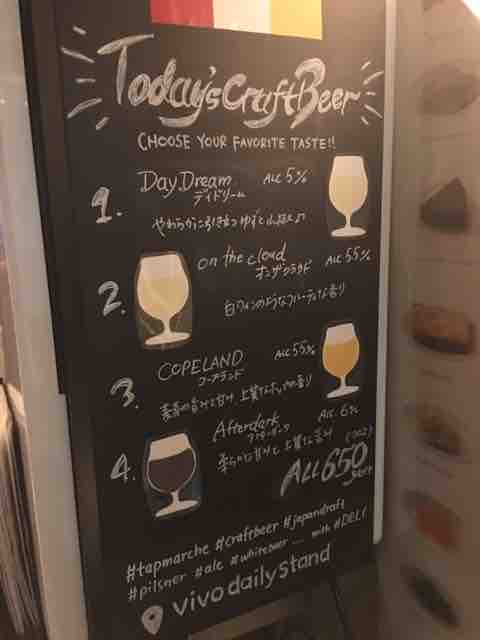 Today's Craft Beer
CHOOSE YOUR FAVORITE TASTE!!
1. Day.Dream ALC 5%
デイドリーム
やわらかに引き立つゆずと山椒
2. on the cloud ALC 5.5%
オンザクラウド
白ワインのようなフルーティな香り
3. COPELAND ALC 5.5%
コープランド
麦芽の旨みと甘み、上質なホップの香り
4. Afterdark ALC. 6%
アフターダーク
柔らかな甘みと上質な苦み
ALL 650
#tapmarche #craftbeer #japancraft
#pilsner #ale #whitebeer .... with #DELI
vivo daily stand